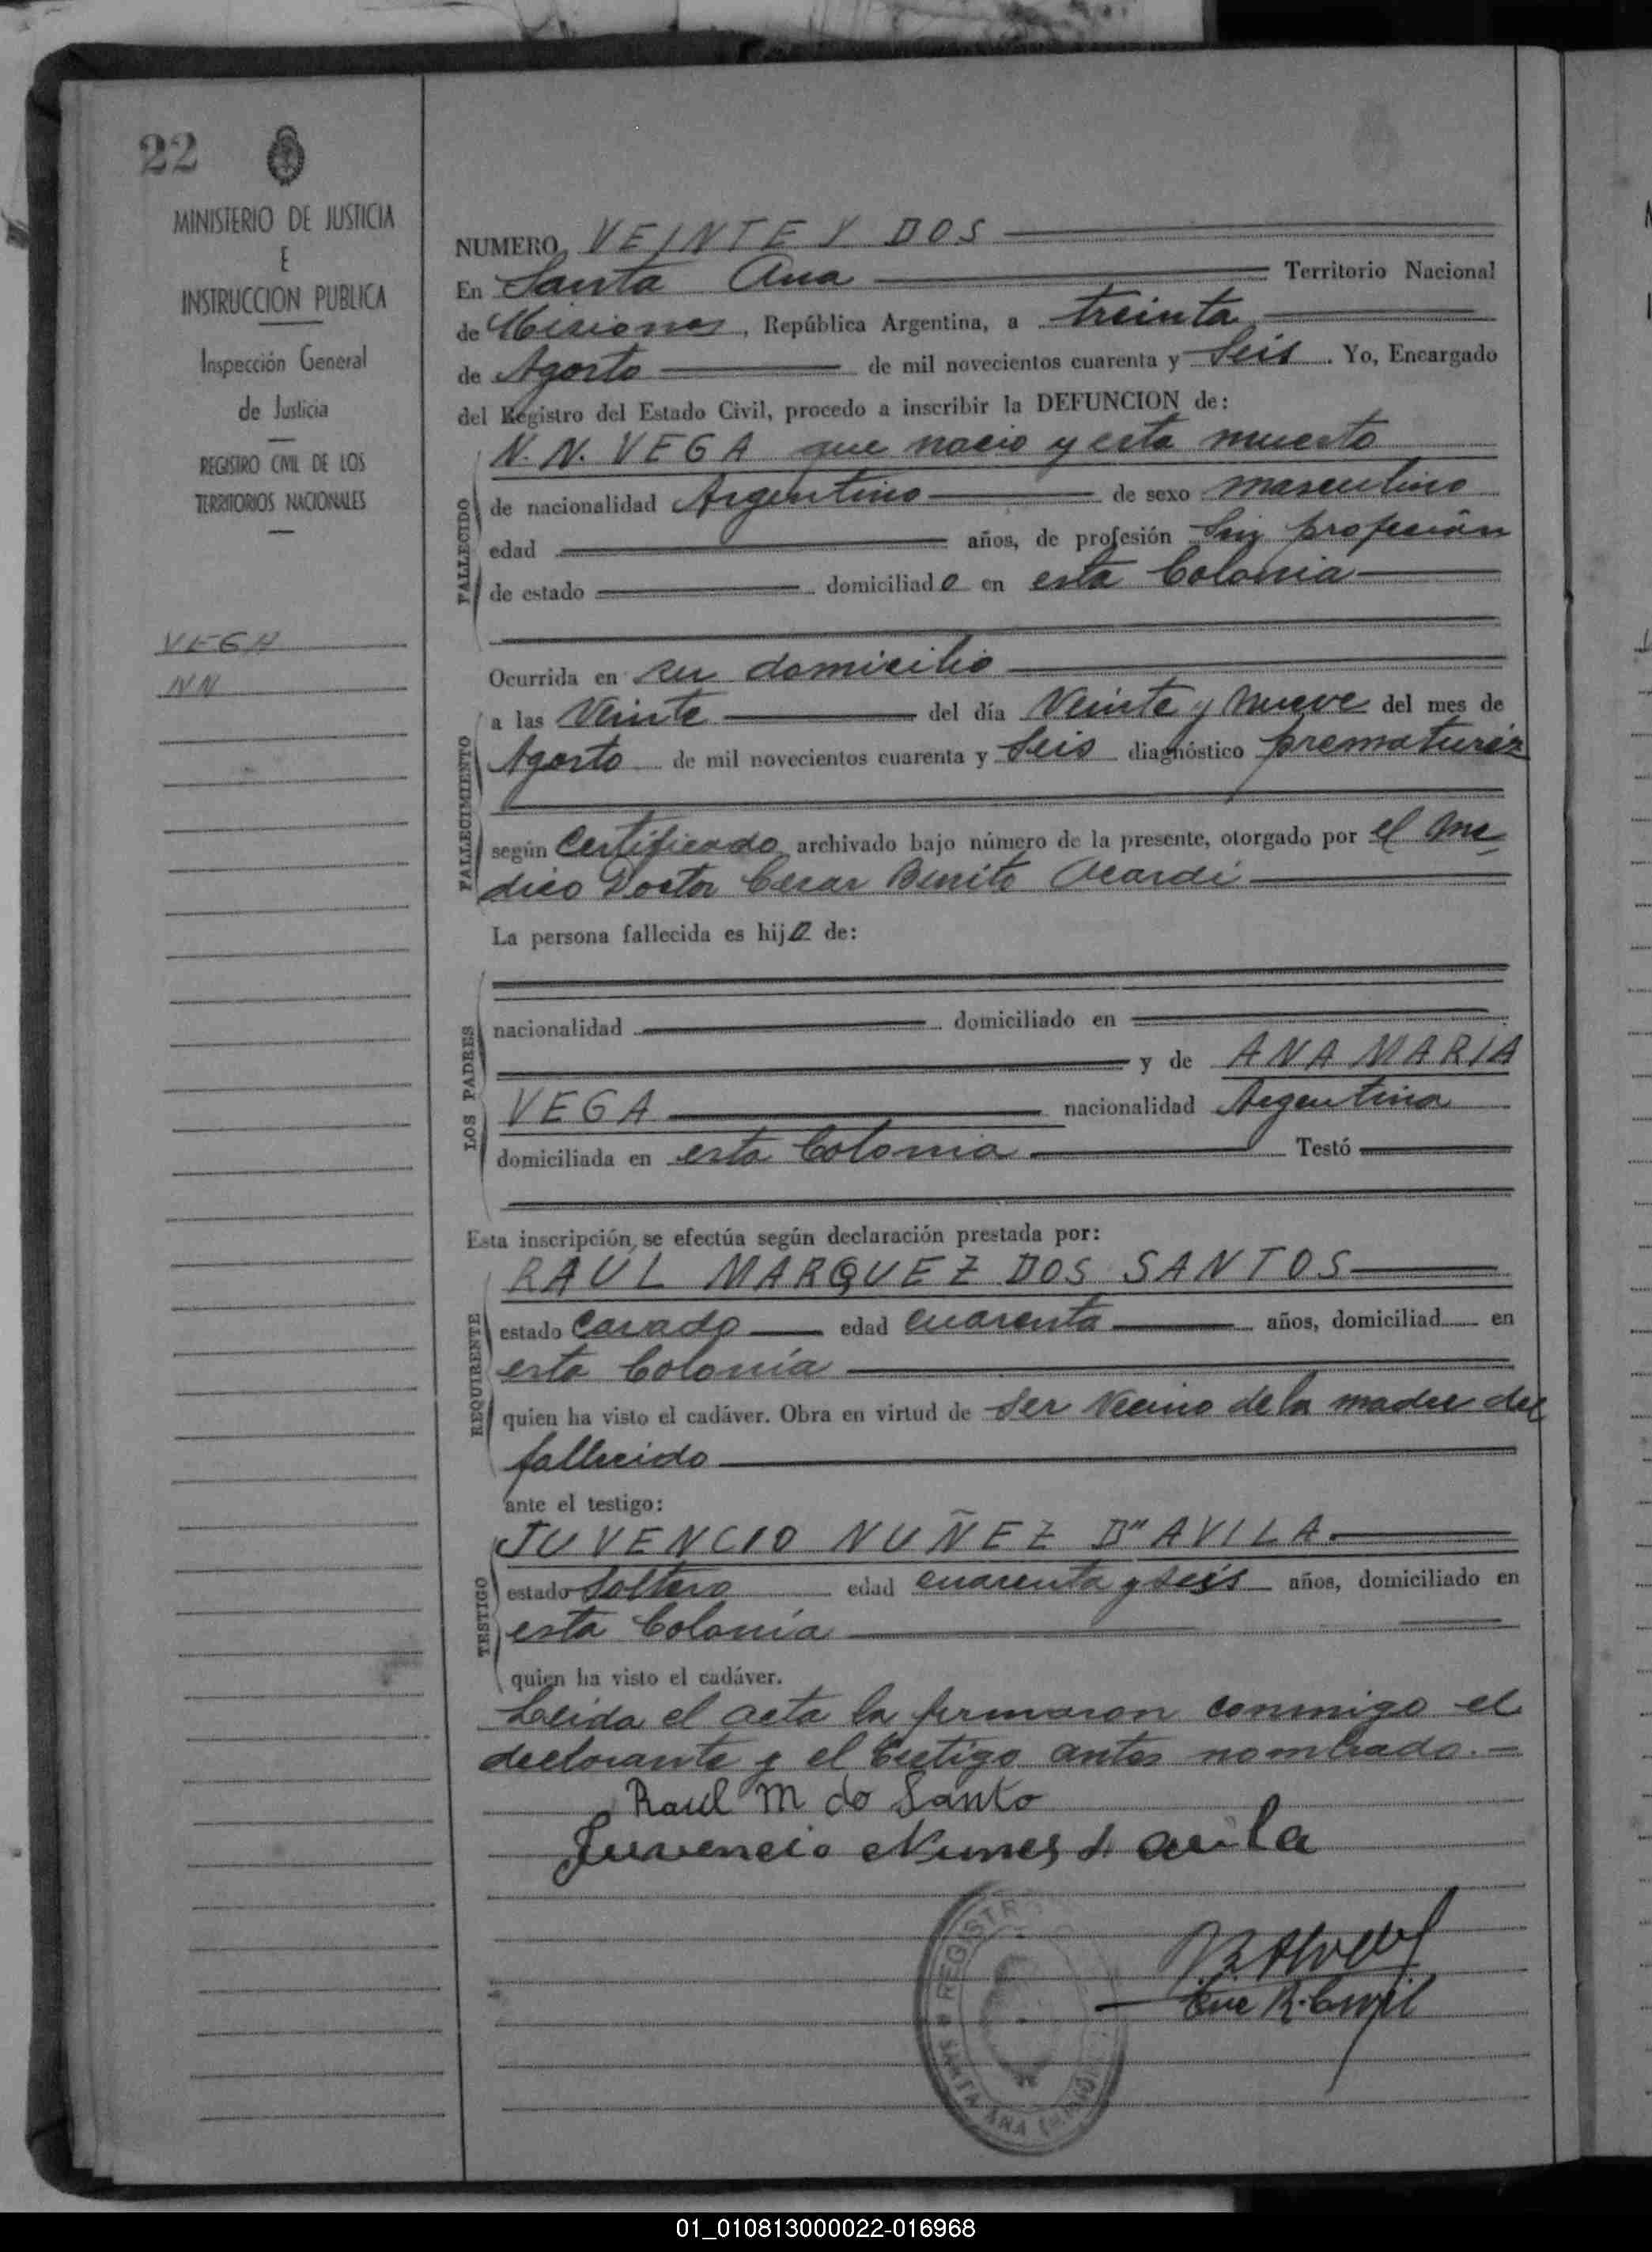 22
MINISTERIO DE JUSTICIA
E
INSTRUCCION PUBLICA
Inspección General
de Justicia
REGISTRO CIVIL DE LOS
TERRITORIOS NACIONALES
VEGA
NN
NUMERO VEINTE Y DOS
En Santa Ana Territorio Nacional
de Misiones, República Argentina, a treinta
de Agosto de mil novecientos cuarenta y Seis. Yo, Encargado
del Registro del Estado Civil, procedo a inscribir la DEFUNCION de:
N.N. VEGA que nacio y esta muerto
FALLECIDO
de nacionalidad Argentino de sexo masculino
edad años, de profesión Sin profesión
de estado domiciliado en esta Colonia
Ocurrida en su domicilio
FALLECIMIENTO
a las Veinte del día Veinte y nueve del mes de
Agosto de mil novecientos cuarenta y Seis diagnóstico prematurez
según Certificado archivado bajo número de la presente, otorgado por el me
dico Doctor Cesar Benito Acardi
La persona fallecida es hijo de:
LOS PADRES
nacionalidad domiciliado en
y de ANA MARIA
VEGA nacionalidad Argentina
domiciliada en esta Colonia Testó
Esta inscripción se efectúa según declaración prestada por:
REQUIRENTE
RAUL MARQUEZ DOS SANTOS
estado Casado edad cuarenta años, domiciliad en
esta Colonia
quien ha visto el cadáver. Obra en virtud de Ser Vecino de la madre del
fallecido
ante el testigo:
TESTIGO
JUVENCIO NUÑEZ D"AVILA
estado Soltero edad cuarenta y seis años, domiciliado en
esta Colonia
quien ha visto el cadáver.
Leida el acta la firmaron conmigo el
declarante y el testigo antes nombrado.-
Raul M do Santo
Juvencio Nunes d avila
Enc R. Civil
REGISTR
SANTA ANA
01_010813000022-016968